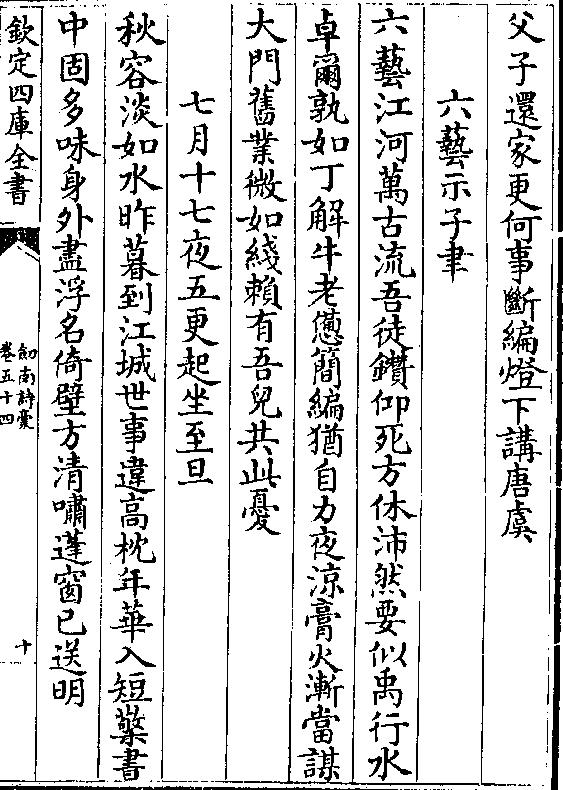 父子還家更何事斷編燈下講唐虞
六藝示子聿
六藝江河萬古流吾徒鑚仰死方休沛然要似禹行水
卓爾孰如丁解牛老憊簡編猶自力夜涼膏火漸當謀
大門舊業微如綫賴有吾兒共此憂
七月十七夜五更起坐至旦
秋容淡如水昨暮到江城世事違高枕年華入短檠書
中固多味身外盡浮名倚壁方清嘯蓬窗已送明
欽定四庫全書
劍南詩稾
卷五十四
十